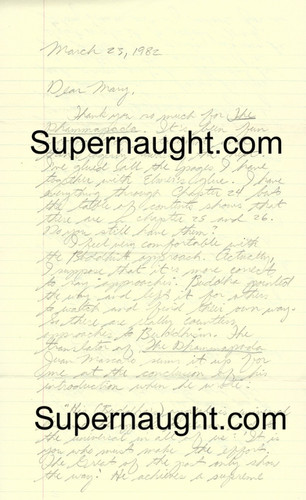 March 25, 1982
Dear Mary,
Thank you so much for The
Dhammapada. It's been fun
Supernaught.com
I've glued all the pages I have
together with Elmer's glue. I have
everything through Chapter 24 but
the table of contents shows that
there are chapters 25 and 26.
Do you still have them?
I feel very comfortable with
the Buddhist approach. Actually,
I suppose that it is more correct
to say "approaches". Buddha pointed
the way and left it for others
to watch and find their own way.
so there are really countless
approaches to Buddhism. The
translator of The Dhammapada
Juan Mascaró sums it up for
me at the conclusion of his
introduction when he wrote:
Supernaught.com
the universal in all of us: "It is
you who must make the effort.
The Great of the past only show
the way." He achieves a supreme